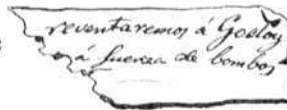 reventaremos á Godoy
á fuerza de bombos